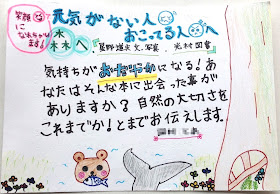 笑顔
に
なれちゃい
ます!
元気がない人
おこってる人へ
森へ
星野道夫 文・写真 光村図書
気持ちがおだやかになる!あ
なたはそんな本に出会った事が
ありますか?自然の大切さを
これまでか!とまでお伝えします。